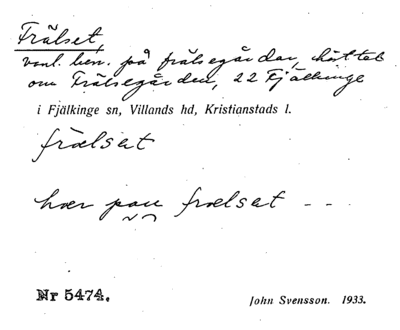 Frälset,
vanl. ben. på frälsegårdar,
om Frälsegården, 22 Fjälkinge
i Fjälkinge sn, Villands hd, Kristianstads l.
frælset
hær pau frælset - -
Nr 5474.
John Svensson. 1933.